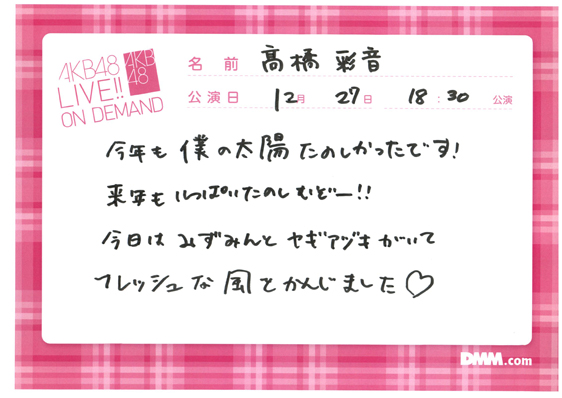 AKB48
LIVE!!
ON DEMAND
AKB
48
名前 髙橋 彩音
公演日 12月 27日 18:30 公演
今年も 僕の太陽 たのしかったです!
来年も いっぱいたのしむぞー!!
今日は みずみんと ヤギアヅキ がいて
フレッシュな 風をかんじました♡
DMM.com